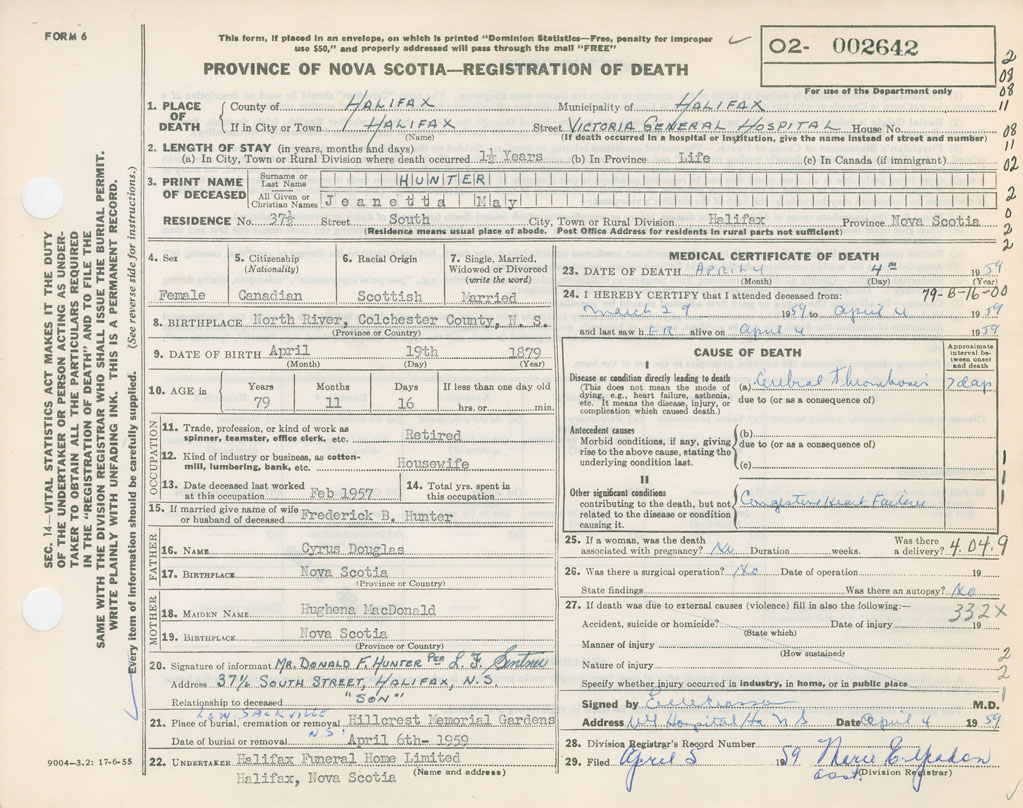 FORM 6
This form, if placed in an envelope, on which is printed "Dominion Statistics—Free, penalty for improper
use $50," and properly addressed will pass through the mail "FREE"
02- 002642
For use of the Department only
PROVINCE OF NOVA SCOTIA—REGISTRATION OF DEATH
1. PLACE OF DEATH
County of HALIFAX Municipality of HALIFAX
If in City or Town HALIFAX Street VICTORIA GENERAL HOSPITAL House No.
(Name) (If death occurred in a hospital or institution, give the name instead of street and number)
2. LENGTH OF STAY (in years, months and days)
(a) In City, Town or Rural Division where death occurred 1½ Years (b) In Province Life (c) In Canada (if immigrant)
3. PRINT NAME OF DECEASED
Surname or Last Name HUNTER
All Given or Christian Names Jeanetta May
RESIDENCE No. 37½ Street South City, Town or Rural Division Halifax Province Nova Scotia
(Residence means usual place of abode. Post Office Address for residents in rural parts not sufficient)
2
08
08
11
08
11
02
2
0
2
2
SEC. 14—VITAL STATISTICS ACT MAKES IT THE DUTY
OF THE UNDERTAKER OR PERSON ACTING AS UNDER-
TAKER TO OBTAIN ALL THE PARTICULARS REQUIRED
IN THE "REGISTRATION OF DEATH" AND TO FILE THE
SAME WITH THE DIVISION REGISTRAR WHO SHALL ISSUE THE BURIAL PERMIT.
WRITE PLAINLY WITH UNFADING INK. THIS IS A PERMANENT RECORD.
Every item of information should be carefully supplied. (See reverse side for instructions.)
4. Sex
Female
5. Citizenship
(Nationality)
Canadian
6. Racial Origin
Scottish
7. Single, Married,
Widowed or Divorced
(write the word)
Married
8. BIRTHPLACE North River, Colchester County, N. S.
(Province or Country)
9. DATE OF BIRTH April 19th 1879
(Month) (Day) (Year)
10. AGE in Years Months Days If less than one day old
79 11 16 hrs. or min.
OCCUPATION
11. Trade, profession, or kind of work as
spinner, teamster, office clerk, etc. Retired
12. Kind of industry or business, as cotton-
mill, lumbering, bank, etc. Housewife
13. Date deceased last worked
at this occupation Feb 1957
14. Total yrs. spent in
this occupation
15. If married give name of wife
or husband of deceased Frederick B. Hunter
FATHER
16. NAME Cyrus Douglas
17. BIRTHPLACE Nova Scotia
(Province or Country)
MOTHER
18. MAIDEN NAME. Hughena MacDonald
19. BIRTHPLACE Nova Scotia
(Province or Country)
20. Signature of informant MR. DONALD F. HUNTER PER L. F.
Address 37½ SOUTH STREET, HALIFAX, N.S.
Relationship to deceased "SON"
LOW. SACKVILLE
N.S.
21. Place of burial, cremation or removal Hillcrest Memorial Gardens
Date of burial or removal April 6th- 1959
22. UNDERTAKER Halifax Funeral Home Limited
Halifax, Nova Scotia (Name and address)
9004—3.2: 17-6-55
MEDICAL CERTIFICATE OF DEATH
23. DATE OF DEATH APRIL 4 4th 1959
(Month) (Day) (Year)
24. I HEREBY CERTIFY that I attended deceased from: 79-B-16-00
March 29 1959 to April 4 1959
and last saw h ER alive on April 4 1959
CAUSE OF DEATH
Approximate
interval be-
tween onset
and death
I
Disease or condition directly leading to death
(This does not mean the mode of
dying, e.g., heart failure, asthenia,
etc. It means the disease, injury, or
complication which caused death.)
(a) Cerebral Thrombosis 7 days
due to (or as a consequence of)
Antecedent causes
Morbid conditions, if any, giving
rise to the above cause, stating the
underlying condition last.
(b)
due to (or as a consequence of)
(c)
II
Other significant conditions
contributing to the death, but not
related to the disease or condition
causing it.
Congestive Heart Failure
1
1
1
25. If a woman, was the death
associated with pregnancy? No Duration weeks. Was there
a delivery? 4.04.9
26. Was there a surgical operation? No Date of operation 19
State findings Was there an autopsy? No
27. If death was due to external causes (violence) fill in also the following:— 332X
Accident, suicide or homicide? Date of injury 19
(State which)
Manner of injury
(How sustained)
Nature of injury
Specify whether injury occurred in industry, in home, or in public place
2
2
1
Signed by M.D.
Address VG Hospital Hx N S Date April 4 1959
28. Division Registrar's Record Number
29. Filed April 5 1959 Marie E.
asst. (Division Registrar)